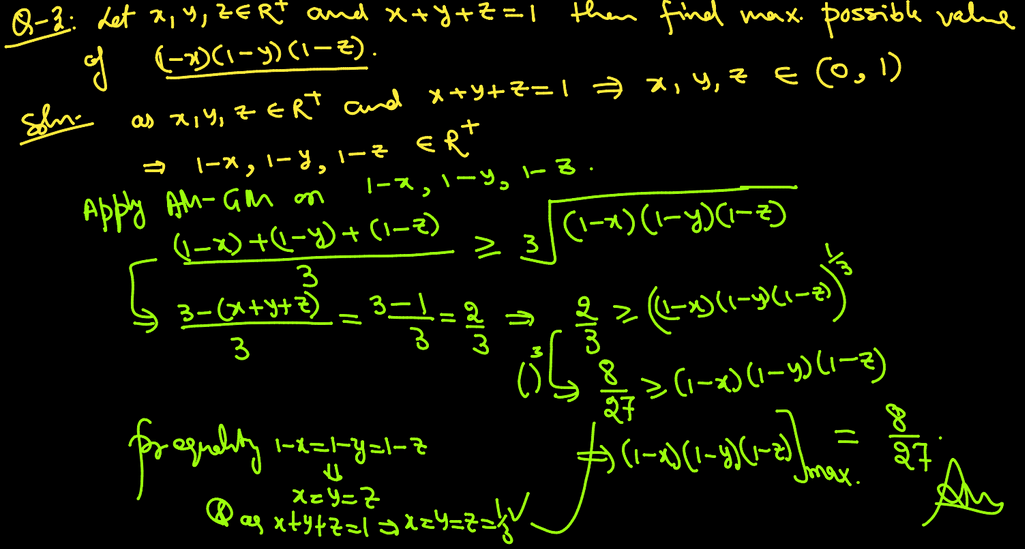 Q-3: Let x, y, z ∈ R⁺ and x+y+z=1 then find max. possible value
of (1-x)(1-y)(1-z).
Soln. as x, y, z ∈ R⁺ and x+y+z=1 ⇒ x, y, z ∈ (0, 1)
⇒ 1-x, 1-y, 1-z ∈ R⁺
Apply AM-GM on 1-x, 1-y, 1-z.
((1-x)+(1-y)+(1-z))/3 ≥ ∛((1-x)(1-y)(1-z))
↳ (3-(x+y+z))/3 = (3-1)/3 = 2/3 ⇒ 2/3 ≥ ((1-x)(1-y)(1-z))^(1/3)
( )³ ↳ 8/27 ≥ (1-x)(1-y)(1-z)
for equality 1-x=1-y=1-z
⇓
x=y=z
& as x+y+z=1 ⇒ x=y=z=1/3 ✓
⇒ (1-x)(1-y)(1-z)]max. = 8/27. Ans